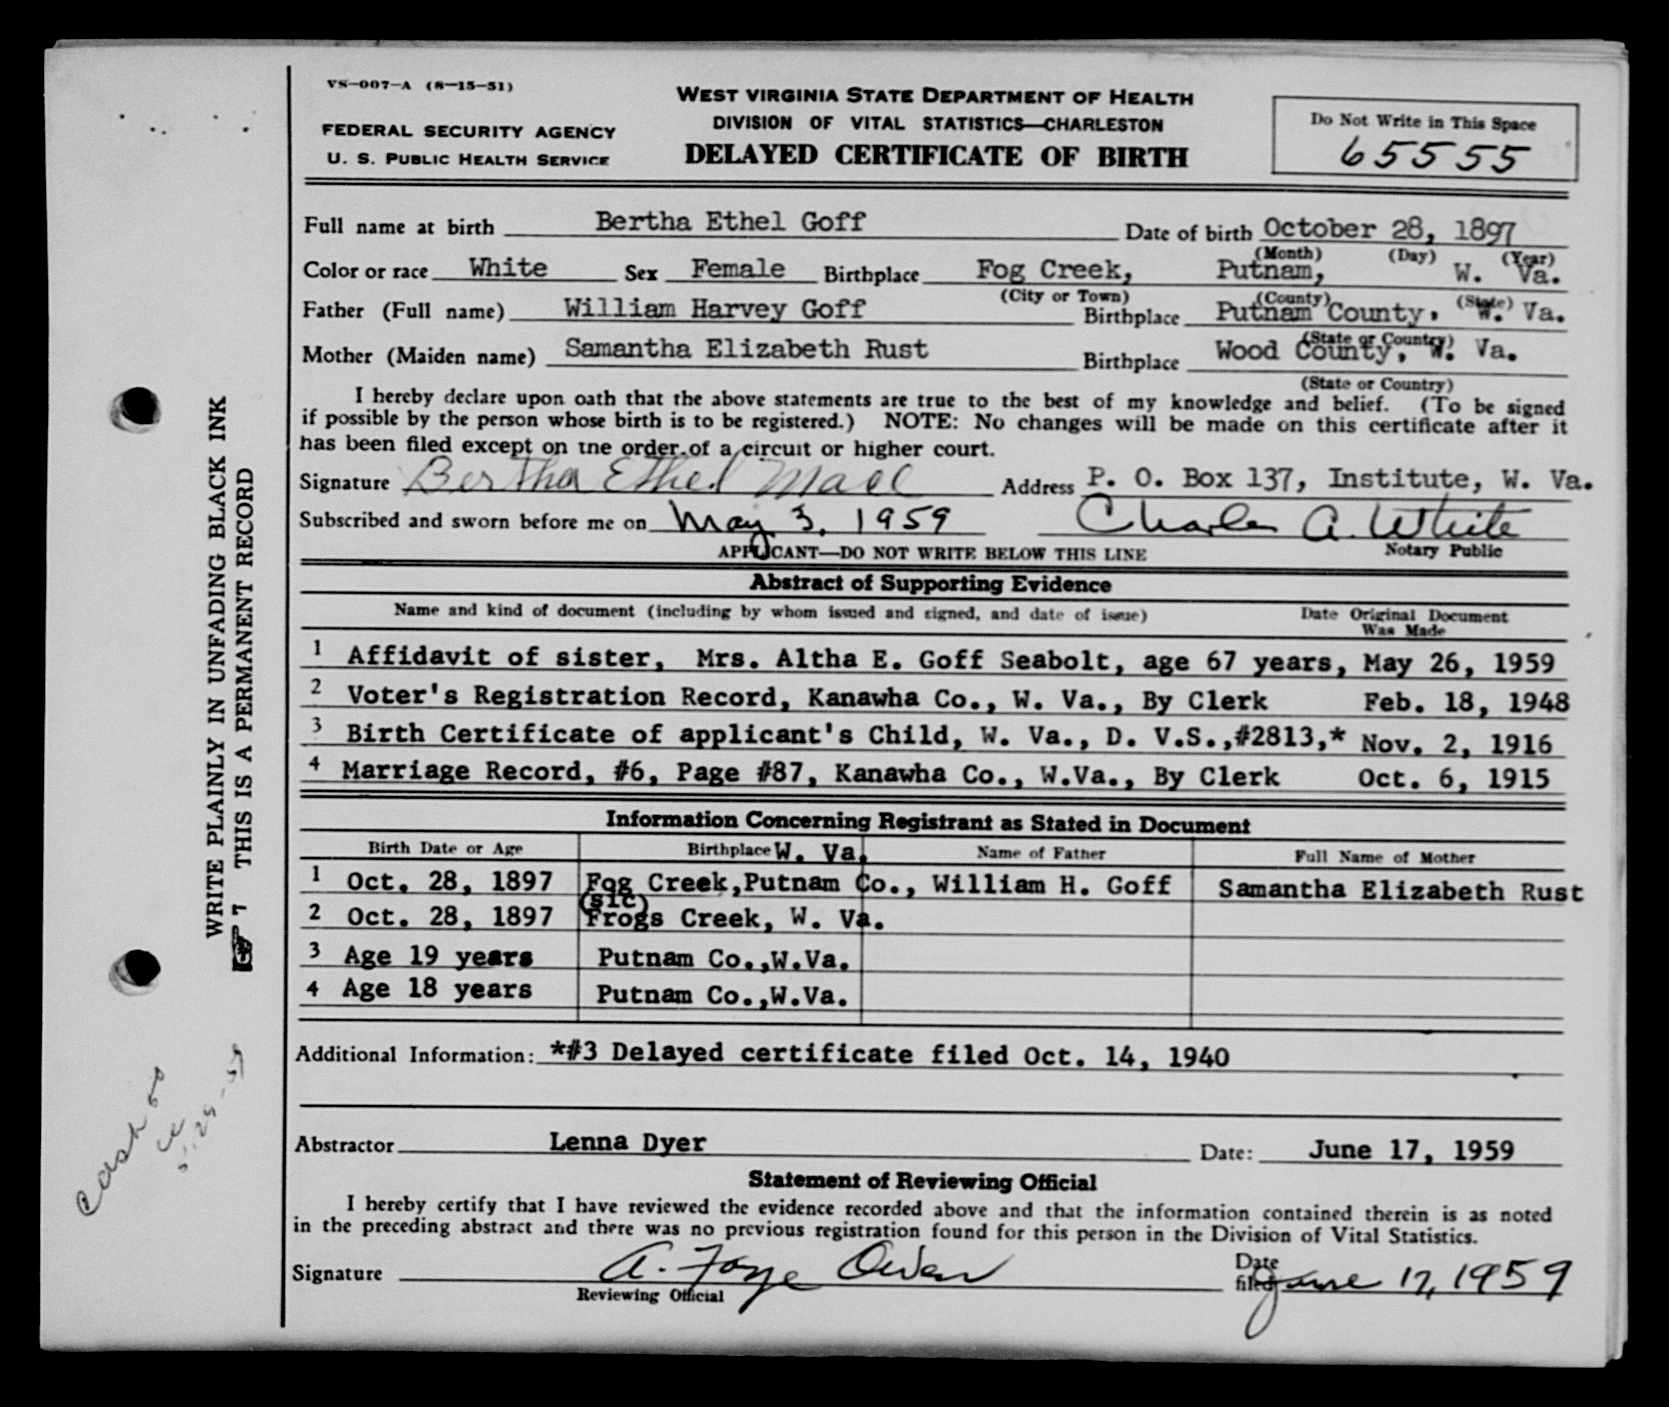 VS—007—A (8—15—51)
FEDERAL SECURITY AGENCY
U. S. PUBLIC HEALTH SERVICE
WEST VIRGINIA STATE DEPARTMENT OF HEALTH
DIVISION OF VITAL STATISTICS—CHARLESTON
DELAYED CERTIFICATE OF BIRTH
Do Not Write in This Space
65555
Full name at birth Bertha Ethel Goff Date of birth October 28, 1897
(Month) (Day) (Year)
Color or race White Sex Female Birthplace Fog Creek, Putnam, W. Va.
(City or Town) (County) (State)
Father (Full name) William Harvey Goff Birthplace Putnam County, W. Va.
(State or Country)
Mother (Maiden name) Samantha Elizabeth Rust Birthplace Wood County, W. Va.
(State or Country)
I hereby declare upon oath that the above statements are true to the best of my knowledge and belief. (To be signed
if possible by the person whose birth is to be registered.) NOTE: No changes will be made on this certificate after it
has been filed except on the order of a circuit or higher court.
Signature Bertha Ethel Address P. O. Box 137, Institute, W. Va.
Subscribed and sworn before me on May 3, 1959 Charles A. White
APPLICANT—DO NOT WRITE BELOW THIS LINE Notary Public
Abstract of Supporting Evidence
Name and kind of document (including by whom issued and signed, and date of issue) Date Original Document
Was Made
1 Affidavit of sister, Mrs. Altha E. Goff Seabolt, age 67 years, May 26, 1959
2 Voter's Registration Record, Kanawha Co., W. Va., By Clerk Feb. 18, 1948
3 Birth Certificate of applicant's Child, W. Va., D. V.S.,#2813,* Nov. 2, 1916
4 Marriage Record, #6, Page #87, Kanawha Co., W.Va., By Clerk Oct. 6, 1915
Information Concerning Registrant as Stated in Document
Birth Date or Age Birthplace W. Va. Name of Father Full Name of Mother
1 Oct. 28, 1897 Fog Creek,Putnam Co., William H. Goff Samantha Elizabeth Rust
(sic)
2 Oct. 28, 1897 Frogs Creek, W. Va.
3 Age 19 years Putnam Co.,W.Va.
4 Age 18 years Putnam Co.,W.Va.
Additional Information: *#3 Delayed certificate filed Oct. 14, 1940
Abstractor Lenna Dyer Date: June 17, 1959
Statement of Reviewing Official
I hereby certify that I have reviewed the evidence recorded above and that the information contained therein is as noted
in the preceding abstract and there was no previous registration found for this person in the Division of Vital Statistics.
Signature A. Faye Owen Date
filed June 17, 1959
Reviewing Official
WRITE PLAINLY IN UNFADING BLACK INK
7 THIS IS A PERMANENT RECORD
Cash